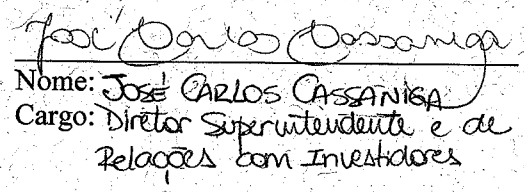 José Carlos Cassaniga
Nome: JOSÉ CARLOS CASSANIGA
Cargo: Diretor Superintendente e de
Relações com Investidores